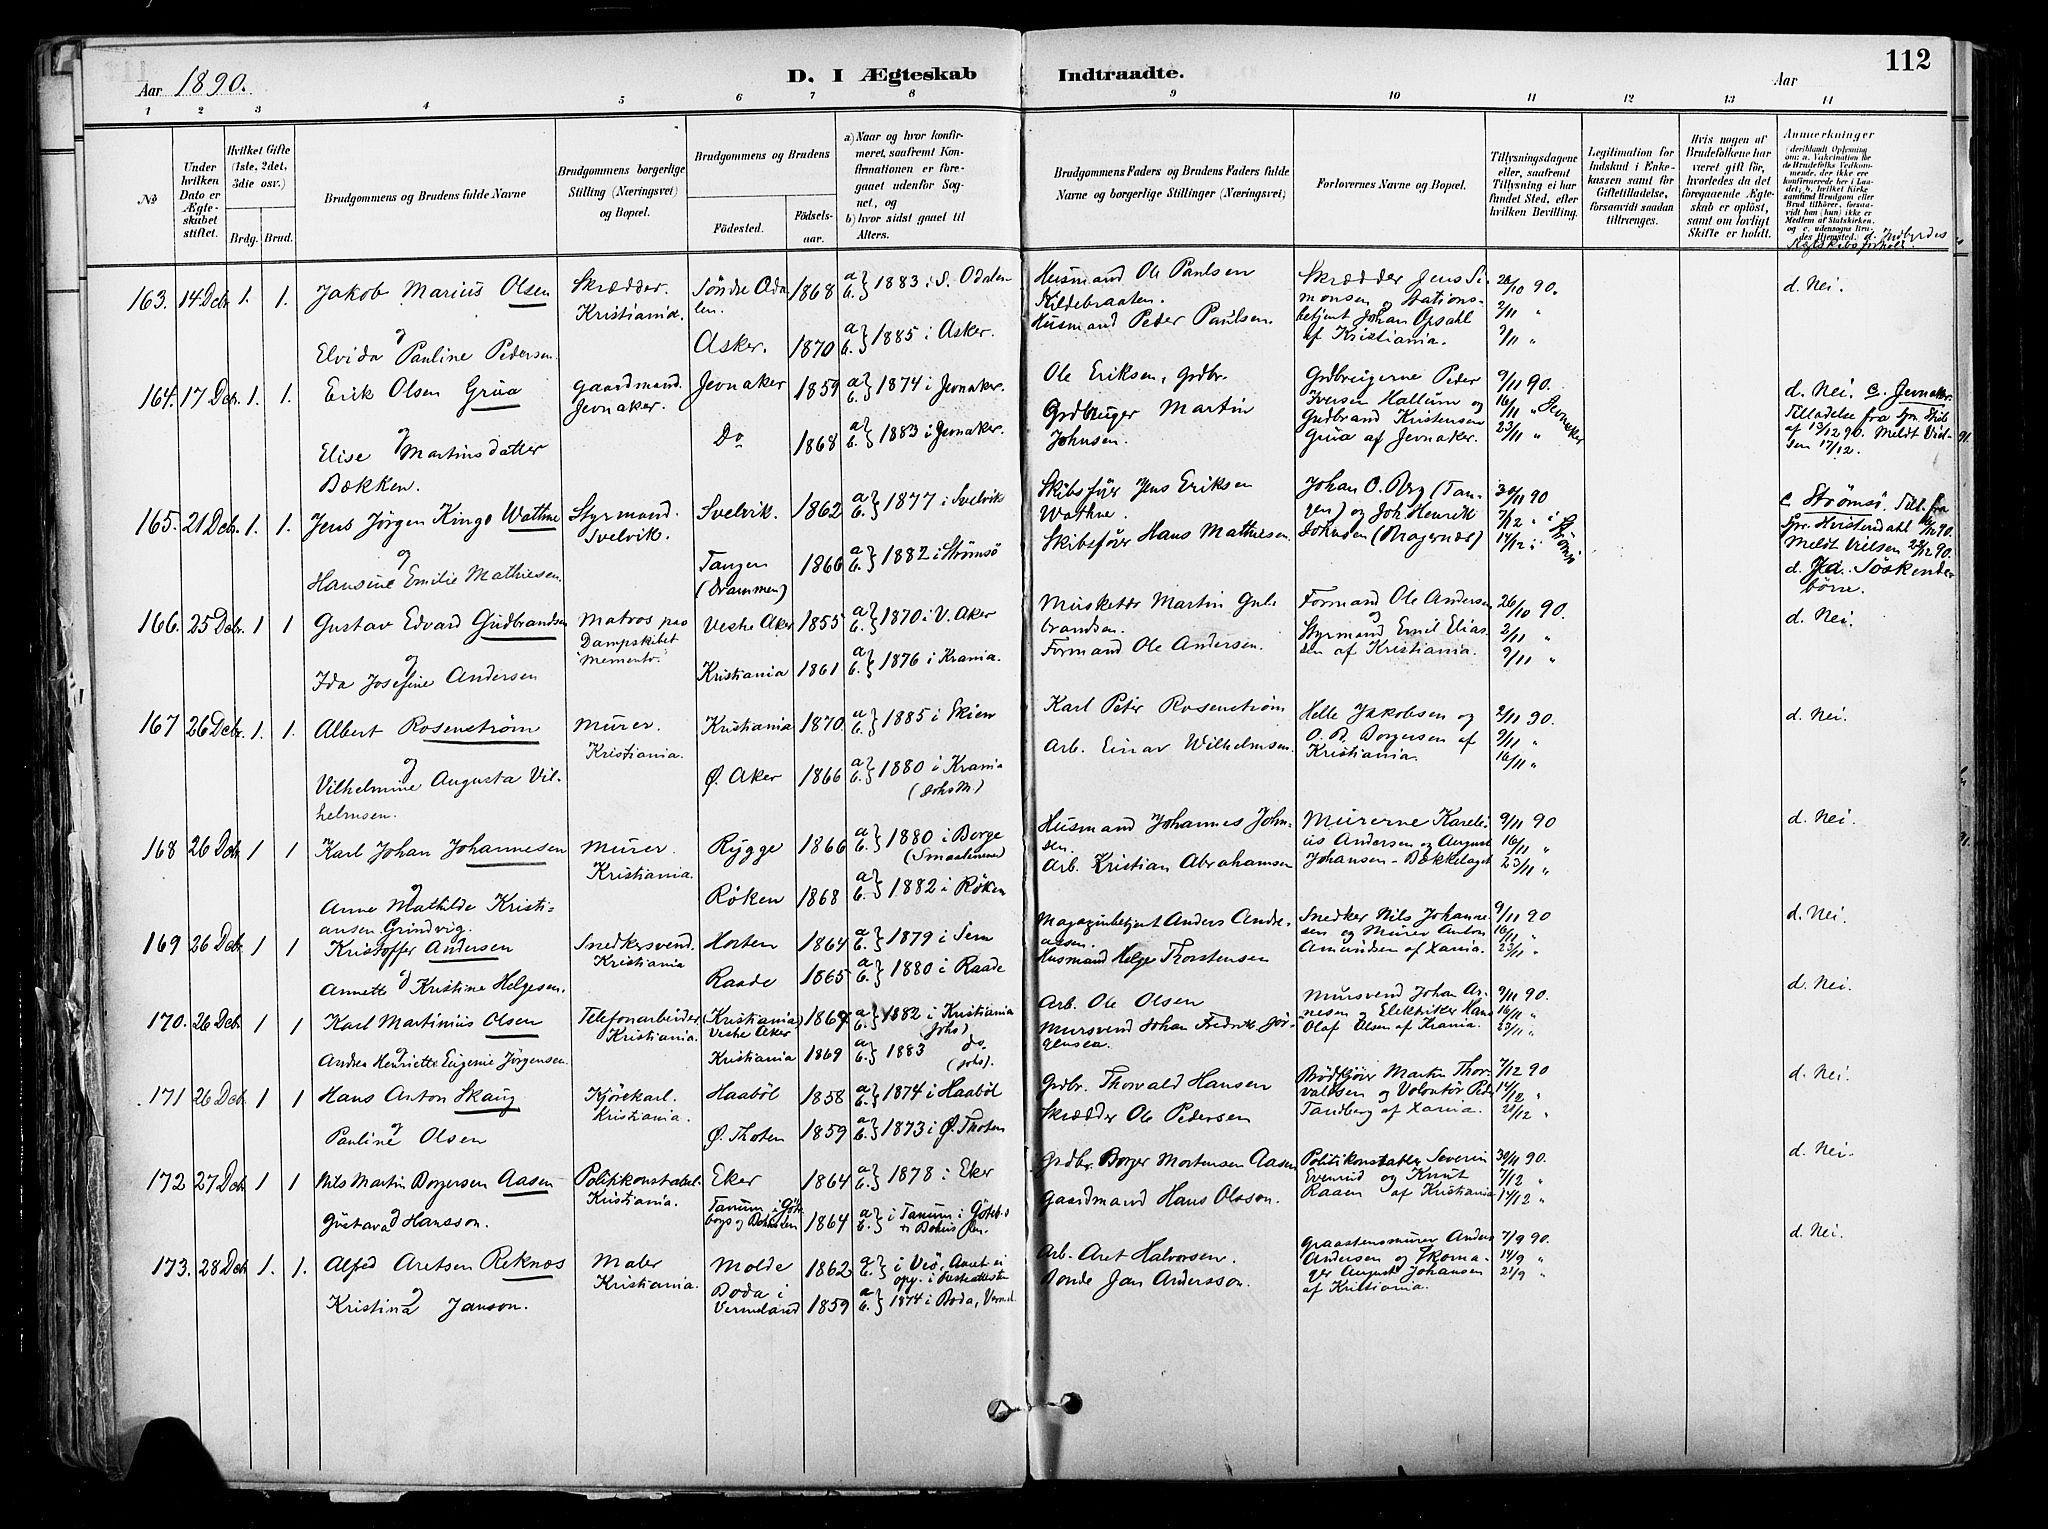 Aar 1890.
D. I Ægteskab Indtraadte.
Aar
112
1 2 3 4 5 6 7 8 9 10 11 12 13 14
No
Under hvilken Dato er Ægteskabet stiftet.
Hvilket Gifte (1ste, 2det, 3die osv.)
Brdg. Brud.
Brudgommens og Brudens fulde Navne
Brudgommens borgerlige Stilling (Næringsvei) og Bopæl.
Brudgommens og Brudens
Födested.
Födselsaar.
a) Naar og hvor konfirmeret, saafremt Konfirmationen er foregaaet udenfor Sognet, og
b) hvor sidst gaaet til Alters.
Brudgommens Faders og Brudens Faders fulde Navne og borgerlige Stillinger (Næringsvei)
Forlovernes Navne og Bopæl.
Tillysningsdagene eller, saafremt Tillysning ei har fundet Sted, efter hvilken Bevilling.
Legitimation for Indskud i Enkekassen samt for Giftetilladelse, forsaavidt saadan tiltrænges.
Hvis nogen af Brudefolkene har været gift før, hvorledes da det foregaaende Ægteskab er oplöst, samt om lovligt Skifte er holdt.
Anmerkninger
d. Indbyrdes Slægtskabsforhold.
163. 14 Dcbr 1. 1. Jakob Marius Olsen Skrædder. Kristiania. Søndre Odalen. 1868 a b } 1883 i S. Odalen Husmand Ole Paulsen Kildebraaten. Skrædder Jens Simonsen og Stationsbetjent Johan Opsahl af Kristiania. 26/10 90. 2/11 " 9/11 " d. Nei.
og Elvida Pauline Pedersen. Asker. 1870 a b } 1885 i Asker. Husmand Peder Paulsen.
164. 17 Dcb. 1. 1. Erik Olsen Grua gaardmand. Jevnaker. Jevnaker 1859 a b } 1874 i Jevnaker. Ole Eriksen, Grdbr. Grdbrugerne Peder Iversen Hallum og Gudbrand Kristensen Grua af Jevnaker. 9/11 90. 16/11 " 23/11 " Jevnaker d. Nei. c. Jevnaker. Tilladelse fra af 13/12 90. Meldt 17/12.
og Elise Martinsdatter Bækken. Do 1868 a b } 1883 i Jevnaker. Grdbruger Martin Johnsen.
165. 21 Dcbr. 1. 1. Jens Jørgen Kingo Wathne Styrmand. Svelvik. Svelvik. 1862 a b } 1877 i Svelvik Skibsfører Jens Eriksen Wathne. Johan O. Berg (Tangen) og Joh. Henrik Johnsen (Bragernæs) 30/11 90 7/12 " i 14/12 " i Strømsø c Strømsø. Till. fra Spr. Hvistendahl 90. Meldt 90. d. Ja. Søskendebørn.
og Hansine Emilie Mathiesen. Tangen (Drammen) 1866 a b } 1882 i Strømsø Skibsfører Hans Mathiesen.
166. 25 Dcbr. 1 1 Gustav Edvard Gudbrandsen Matros paa Dampskibet "Memento". Vestre Aker 1855 a b } 1870 i V. Aker Musketer Martin Gulbrandsen. Formand Ole Andersen og Styrmand Emil Eliassen af Kristiania. 26/10 90. 2/11 " 9/11 " d. Nei.
og Ida Josefine Andersen Kristiania 1861 a b } 1876 i Krania. Formand Ole Andersen.
167 26 Dcbr. 1. 1. Albert Rosenstrøm Murer. Kristiania. Kristiania 1870. a b } 1885 i Skien Karl Peter Rosenstrøm Helle Jakobsen og O. B. Borgersen af Kristiania. 2/11 90. 9/11 " 16/11 " d. Nei.
og Vilhelmine Augusta Vilhelmsen. Ø. Aker 1866 a b } 1880 i Krania (Johs M.) Arb. Einar Wilhelmsen.
168 26 Dcb. 1 1 Karl Johan Johannesen Murer. Kristiania. Rygge 1866 a b } 1880 i Borge Husmand Johannes Johnsen. Murerne Karelius Andersen og August Johansen - Bækkelaget 9/11 90 16/11 " 23/11 " d. Nei.
og Anne Mathilde Kristiansen Grindvig. Røken 1868 a b } 1882 i Røken Arb. Kristian Abrahamsen
169 26 Dcb. 1 1 Kristoffer Andersen Snedkersvend. Kristiania Horten 1864 a b } 1879 i Sem Magazinbetjent Anders Andreassen. Snedker Nils Johannesen og Murer Anton Amundsen af Xania. 9/11 90 16/11 " 23/11 " d. Nei.
og Annette Kristine Helgesen. Raade 1865 a b } 1880 i Raade Husmand Helge Thorstensen
170. 26 Dcb. 1 1 Karl Martinius Olsen Telefonarbeider Kristiania. (Kristiania) Vestre Aker 1867 a b } 1882 i Kristiania (Johs) Arb. Ole Olsen Mursvend Johan Arnesen og Elektriker Hans Olaf Olsen af Krania. 9/11 90. 16/11 " 23/11 " d. Nei.
og Andrea Henriette Eugenie Jørgensen. Kristiania 1869 a b } 1883 do (Johs). Mursvend Johan Fredrik Jörgensen.
171 26 Dcb. 1 1 Hans Anton Skaug Kjørekarl. Kristiania. Haabøl 1858 a b } 1874 i Haabøl Grdbr. Thorvald Hansen Brödkjører Martin Thorvaldsen og Volontør Peder Tandberg af Xania. 7/12 90 14/12 " 21/12 " d. Nei.
og Pauline Olsen Ø. Thoten 1859 a b } 1873 i Ø. Thoten Skrædder Ole Pedersen
172 27 Dcb 1 1 Nils Martin Borgersen Aasen Politikonstabel. Kristiania. Eker 1864 a b } 1878 i Eker Grdbr. Borger Mortensen Aasen Politikonstabler Severin Evenrud og Knut Raaen af Kristiania 30/11 90. 7/12 " 14/12 " d. Nei.
og Gustava Hansson. Tanum i Göteborgs og Bohuslen 1864 a b } i Tanum i Göteb. Gaardmand Hans Olsson.
173. 28 Dcb 1. 1. Alfred Aretsen Reknæs Maler Kristiania. Molde 1862 a b } i Veö, Aaret ei opg. i Daabsattesten Arb. Aret Halvorsen. Graastensmurer Anders Andersen og Skomager August Johansen af Kristiania. 7/9 90. 14/9 " 21/9 " d. Nei.
og Kristina Janson. Boda i Vermeland 1859 a b } 1874 i Boda, Verml. Bonde Jan Andersson.